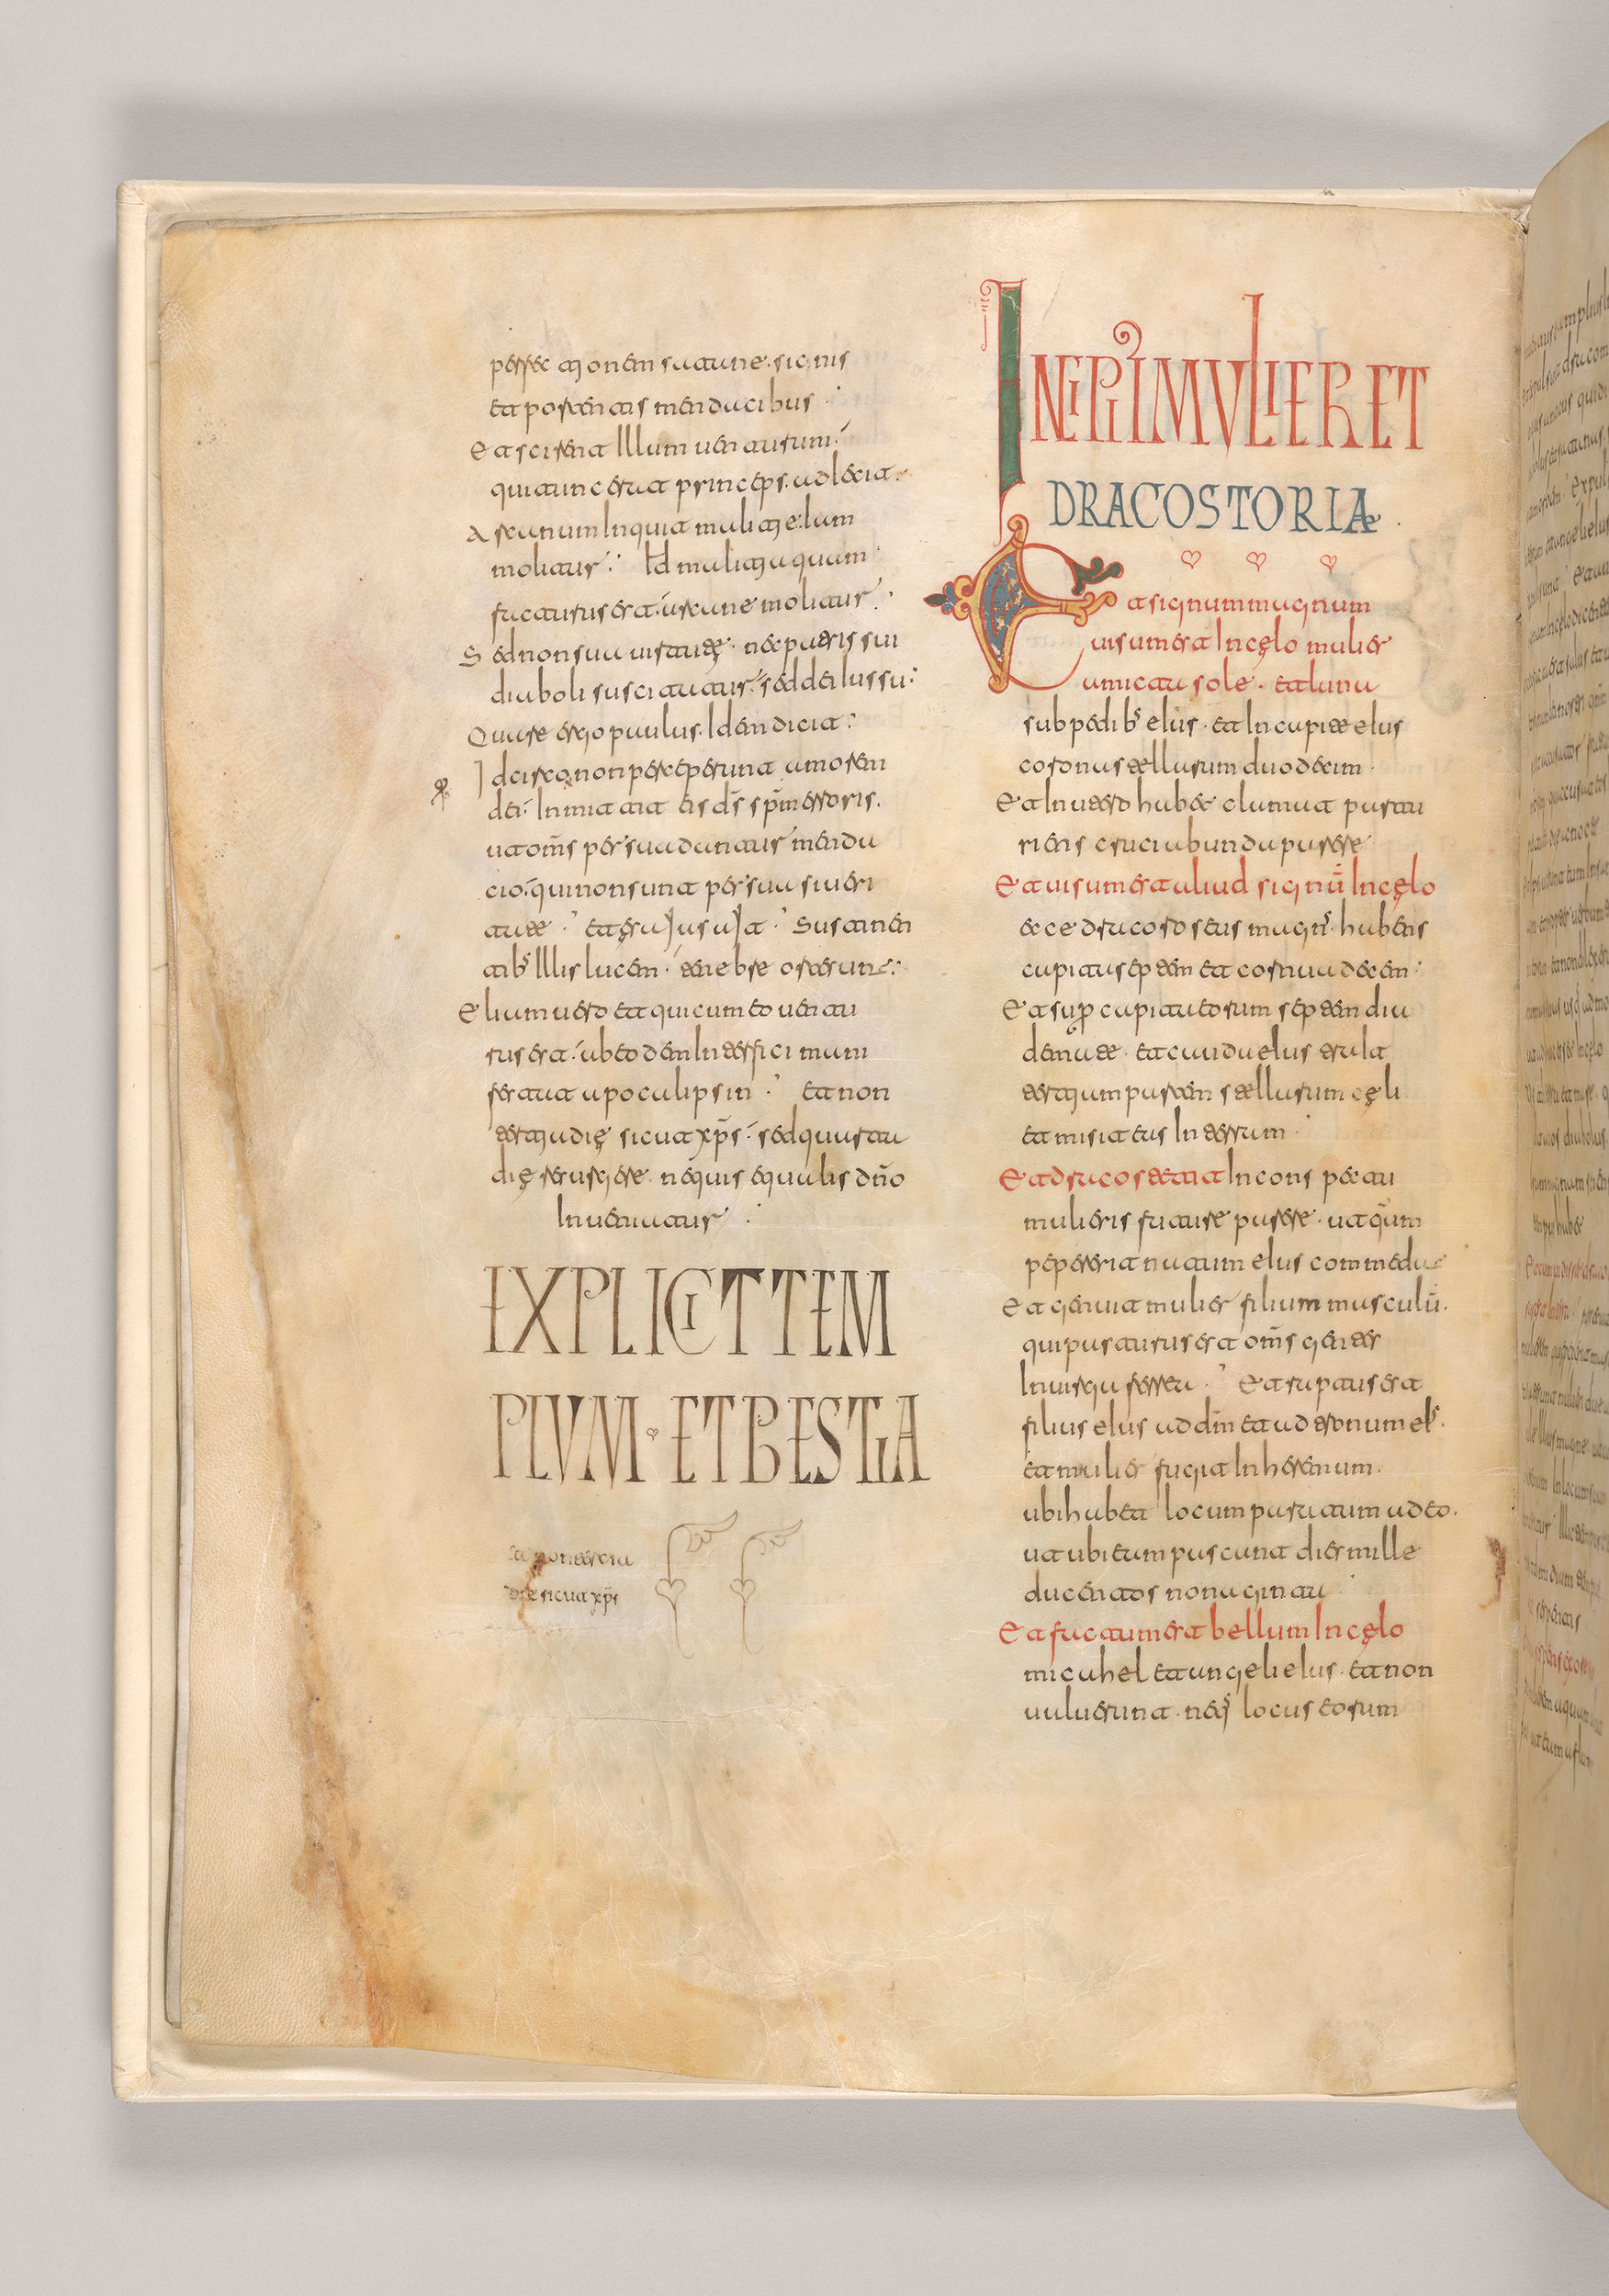 perfectjonem satane. signis
et portentis mendacibus
Et sciret Illum uenturum
qui tunc erit princeps. adlecit
Arcanum Inquit malitje zelum
molitur Id malitja quam
facturus erat arcane molitur
Sed non sua uirtute nec patris sui
diaboli suscitatur. sed dei Iussu
Quare ergo paulus. Idem dicit
Idcirco non perceperunt amorem
dei. Inmittit eis dš spm̄ erroris.
ut oms̄ persuadantur menda
cio. qui non sunt persuasi ueri
tate et esajas ajt Sustinen
tibs Illis lucem. tenebre orte sunt
Elium uero et qui cum eo uentu
rus erat ab eodem Interfici mani
festat apocalipsin et non
tertja die sicut xps̄ sed quarta
die resurgere ne quis equalis dn̄o
Inueniatur
EXPLICIT TEM
PLUM ET BESTIA
et non tertia
die sicut xps̄
INCIPIT MULIER ET
DRACO STORIAE
Et signum magnum
uisum est In cęlo mulier
amicta sole. et luna
sub pedibs eIus. et In capite eIus
corona stellarum duodecim
Et In utero habet clamat partu
riens cruciabunda parere
Et uisum est aliud signū In cęlo
ecce draco roseus magns. habens
capita septem et cornua decem
Et supr capita eorum septem dia
demate. et cauda eIus trait
tertjam partem stellarum cęli
et misit eas In terram
Et draco stetit In conspectu
mulieris partu parere. ut qum
pepererit natum eIus commedat
Et genuit mulier filium masculū.
qui pasturus erat oms̄ gentes
In uirga ferrea Et raptus est
filius eIus ad dm̄ et ad tronum eIs.
et mulier fugit In heremum.
ubi habet locum paratum ad eo.
ut ubi eum pascunt dies mille
ducentos nonaginta
Et factum est bellum In cęlo
micahel et angeli eIus. et non
ualuerunt. neq locus eorum